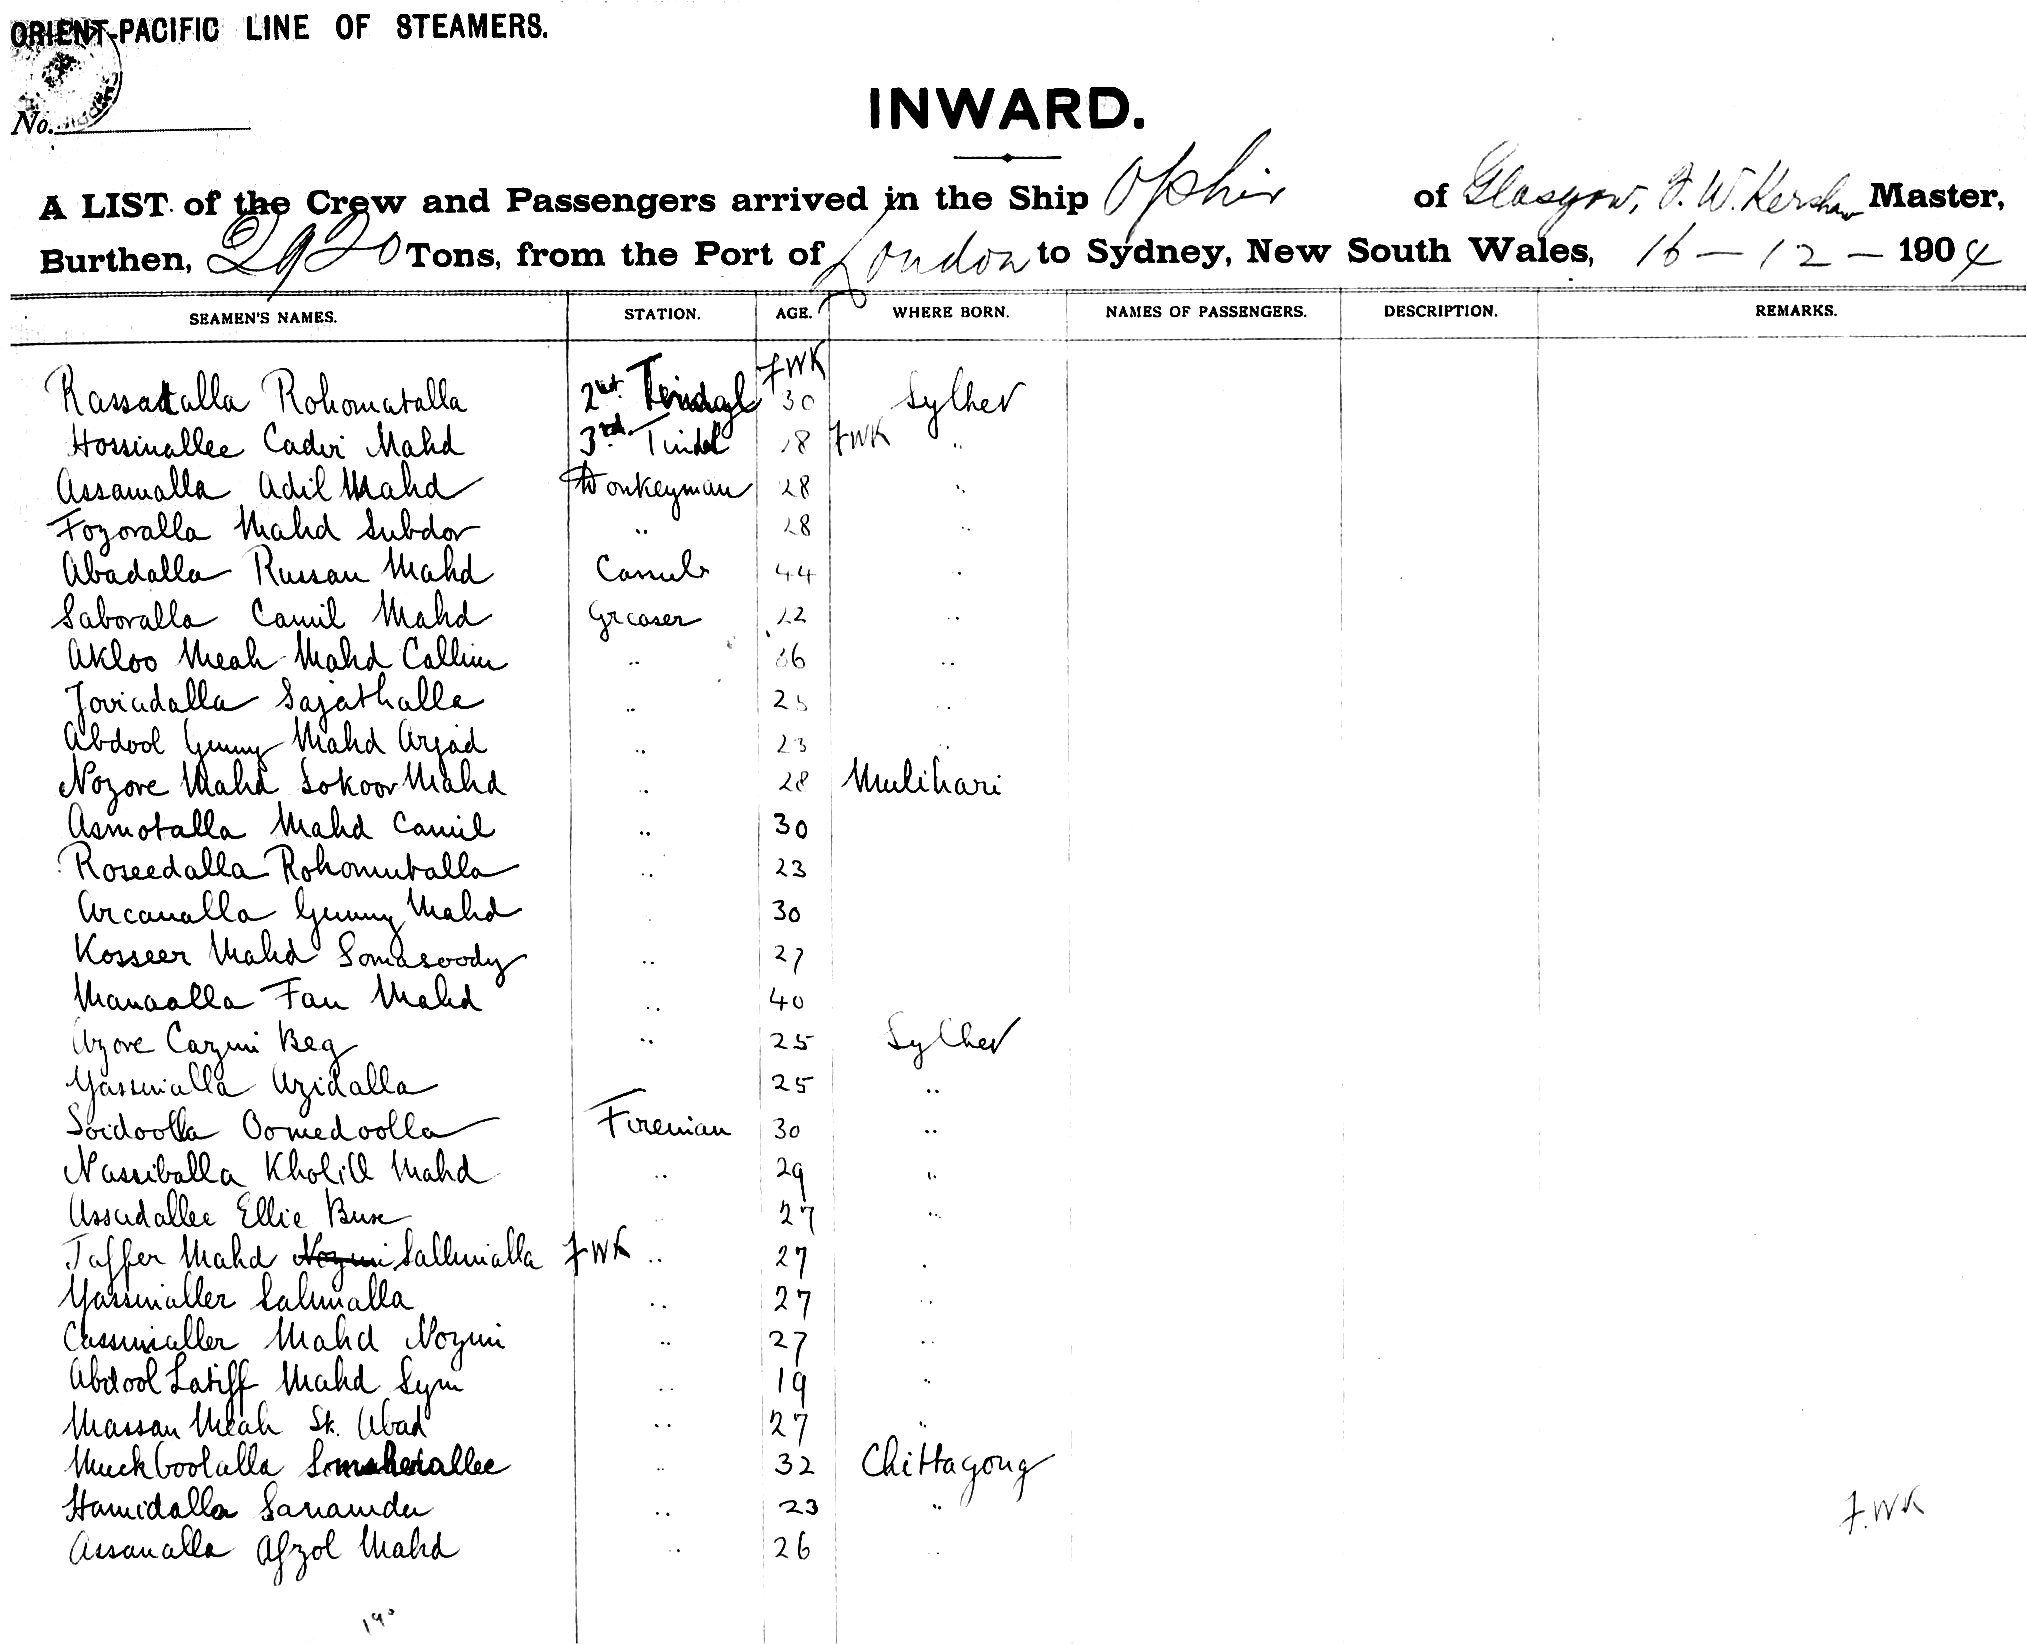 ORIENT-PACIFIC LINE OF STEAMERS.
No.
INWARD.
A LIST of the Crew and Passengers arrived in the Ship Ophir of Glasgow, F. W. Kershaw Master,
Burthen, 2920 Tons, from the Port of London to Sydney, New South Wales, 16 - 12 - 1904
SEAMEN'S NAMES. STATION. AGE. WHERE BORN. NAMES OF PASSENGERS. DESCRIPTION. REMARKS.
FWK
Rassadalla Rohomatalla 2nd Tindal 30 Sylhet
Hossinallee Cadir Mahd 3rd Tindal 28 FWK "
Assamalla Adil Mahd Donkeyman 28 "
Fozoralla Mahd Subdor " 28 "
Abadalla Russan Mahd 44 "
Saboralla Camil Mahd Greaser 22 "
Akloo Meah Mahd Callim " 36 "
Joviadalla Sajathalla " 25 "
Abdool Gunny Mahd Arjad " 23 "
Nozore Mahd Sokoor Mahd " 28 Mulihari
Asmotalla Mahd Camil " 30
Roseedalla Rohomutalla " 23
Arcanalla Gunny Mahd " 30
Kosseer Mahd Somasoody " 27
Manaalla Fan Mahd " 40
Azore Cazim Beg " 25 Sylhet
Yassinalla Azidalla 25 "
Soidoolla Oomedoolla Fireman 30 "
Nassiballa Kholill Mahd " 29 "
Assadallee Ellie Bux 27 "
Jaffer Mahd Nozim Sallimalla FWK " 27 "
Yassinaller Salimalla " 27 "
Cassimaller Mahd Nozim " 27 "
Abdool Latiff Mahd Sym " 19 "
Massan Meah Sk. Abad " 27 "
Muckboolalla " 32 Chittagong
Hamidalla " 23 " F.WK
Assanalla Afzol Mahd " 26 "
190